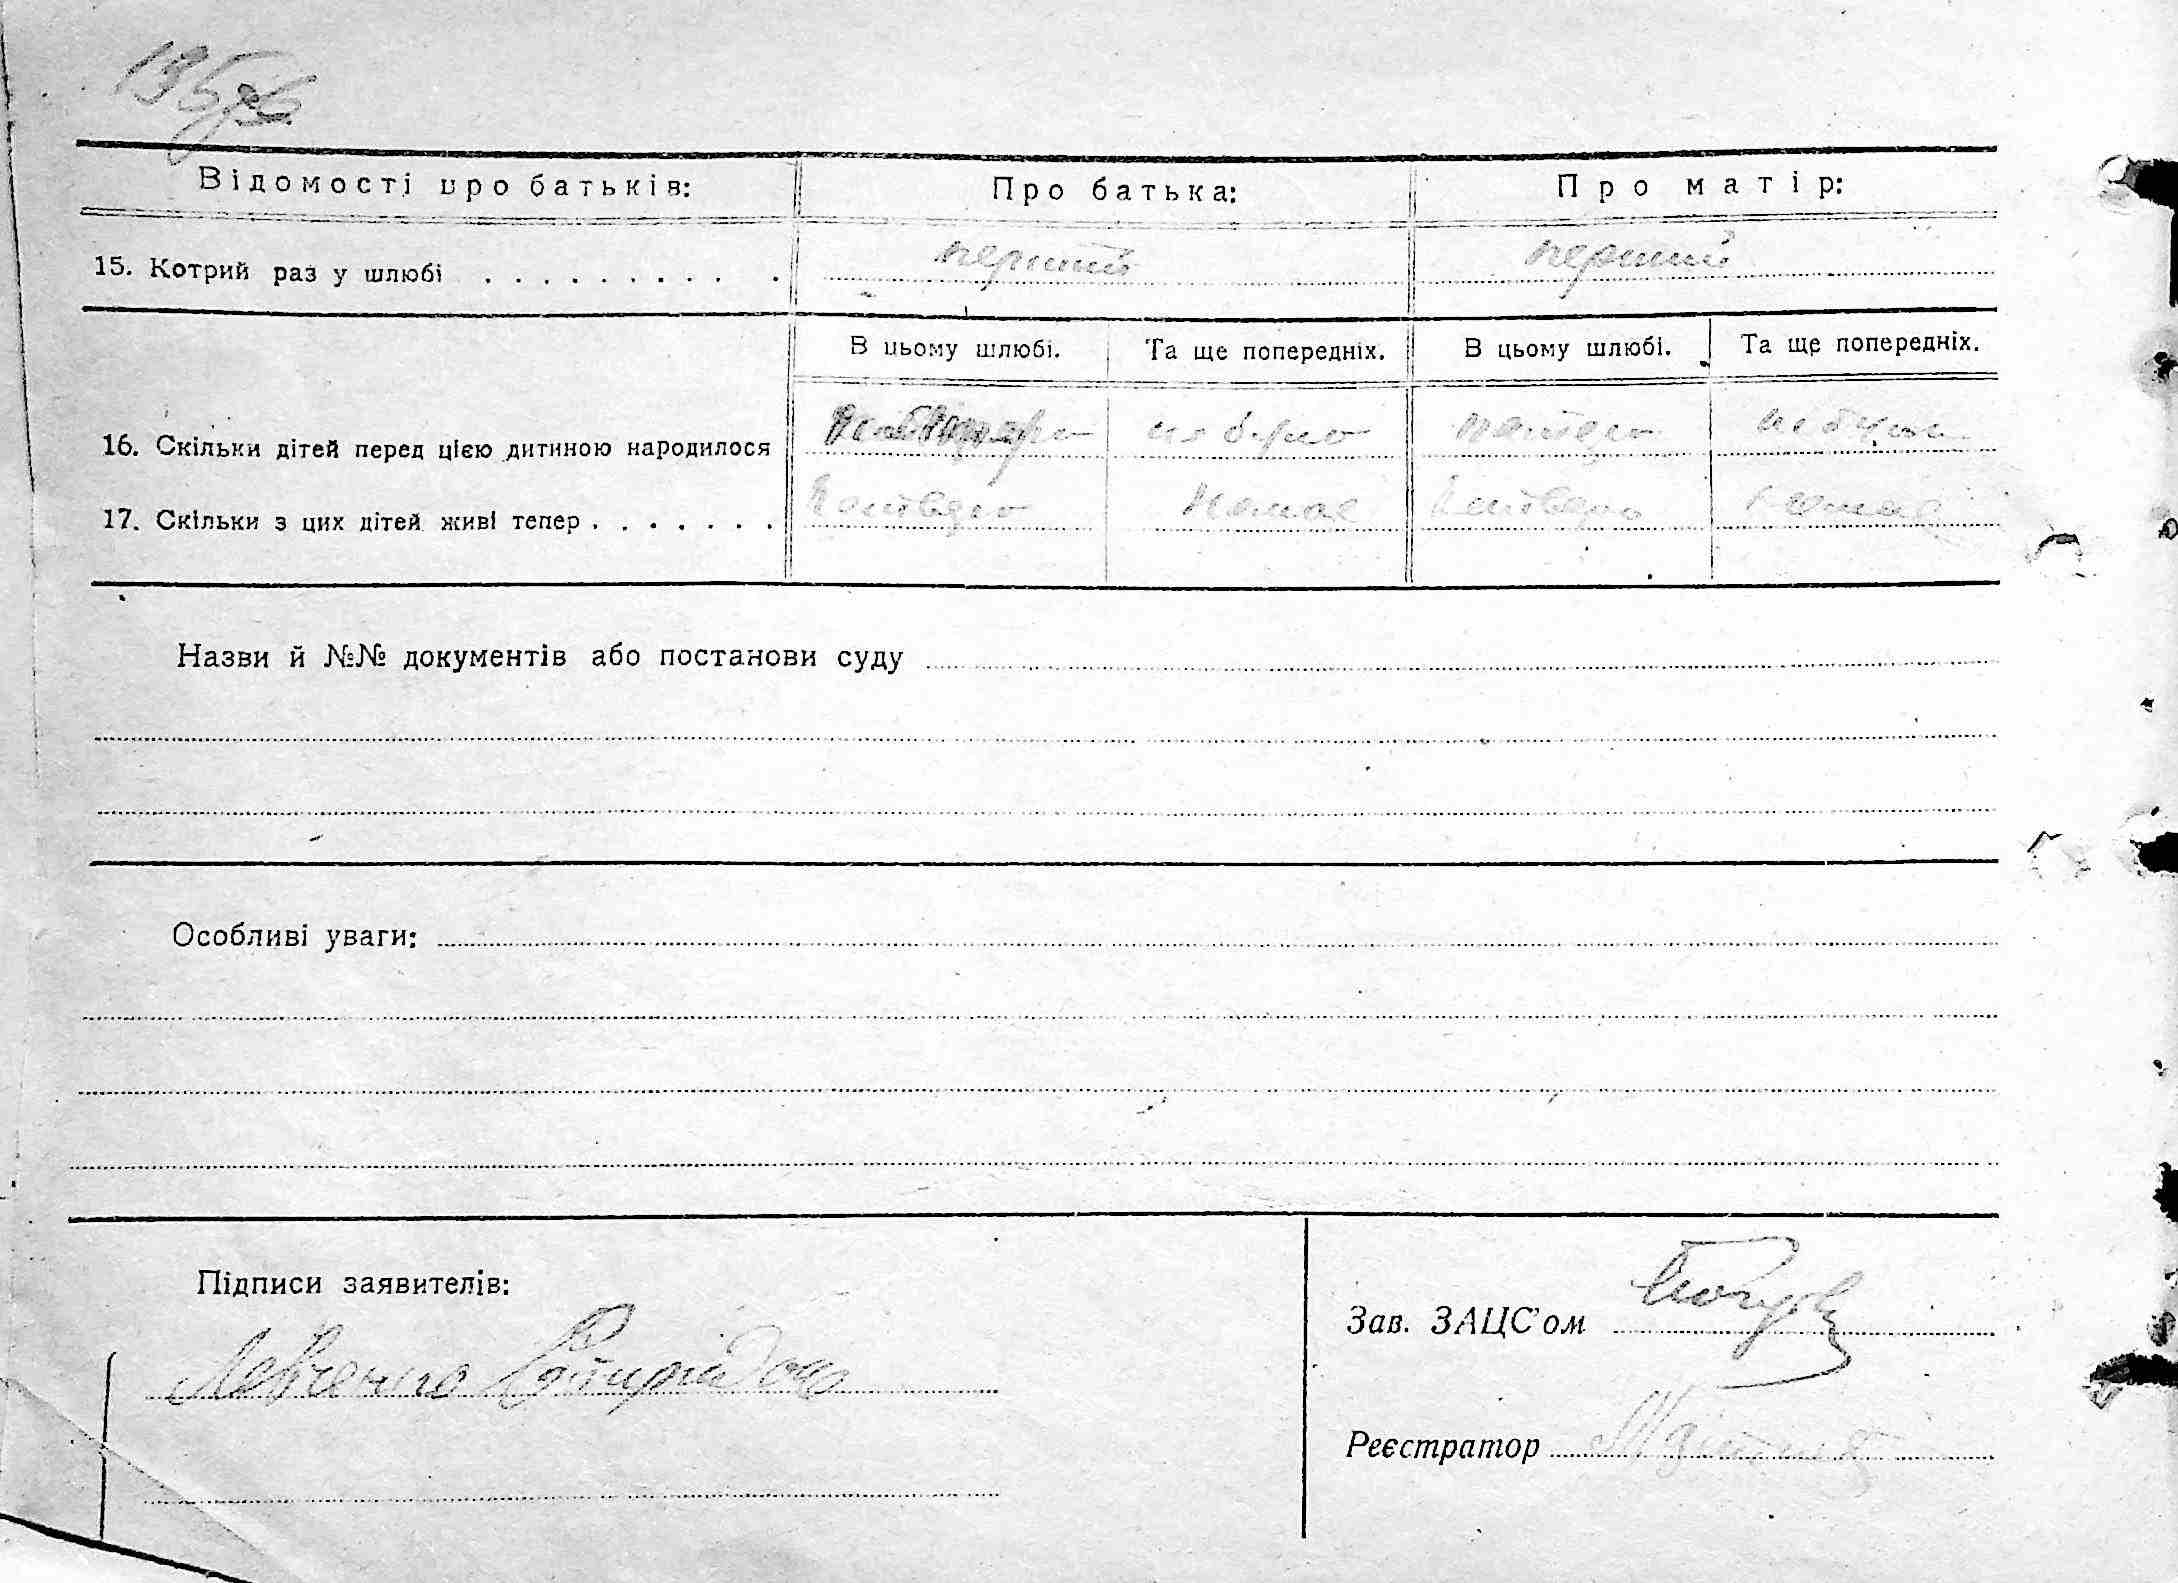 Відомості про батьків: Про батька: Про матір:
15. Котрий раз у шлюбі . . . . . . . . . . перший перший
В цьому шлюбі. Та ще попередніх. В цьому шлюбі. Та ще попередніх.
16. Скільки дітей перед цією дитиною народилося не було не було
17. Скільки з цих дітей живі тепер . . . . . . . немає немає
Назви й №№ документів або постанови суду
Особливі уваги:
Підписи заявителів:
Левченко
Зав. ЗАЦС'ом
Реєстратор